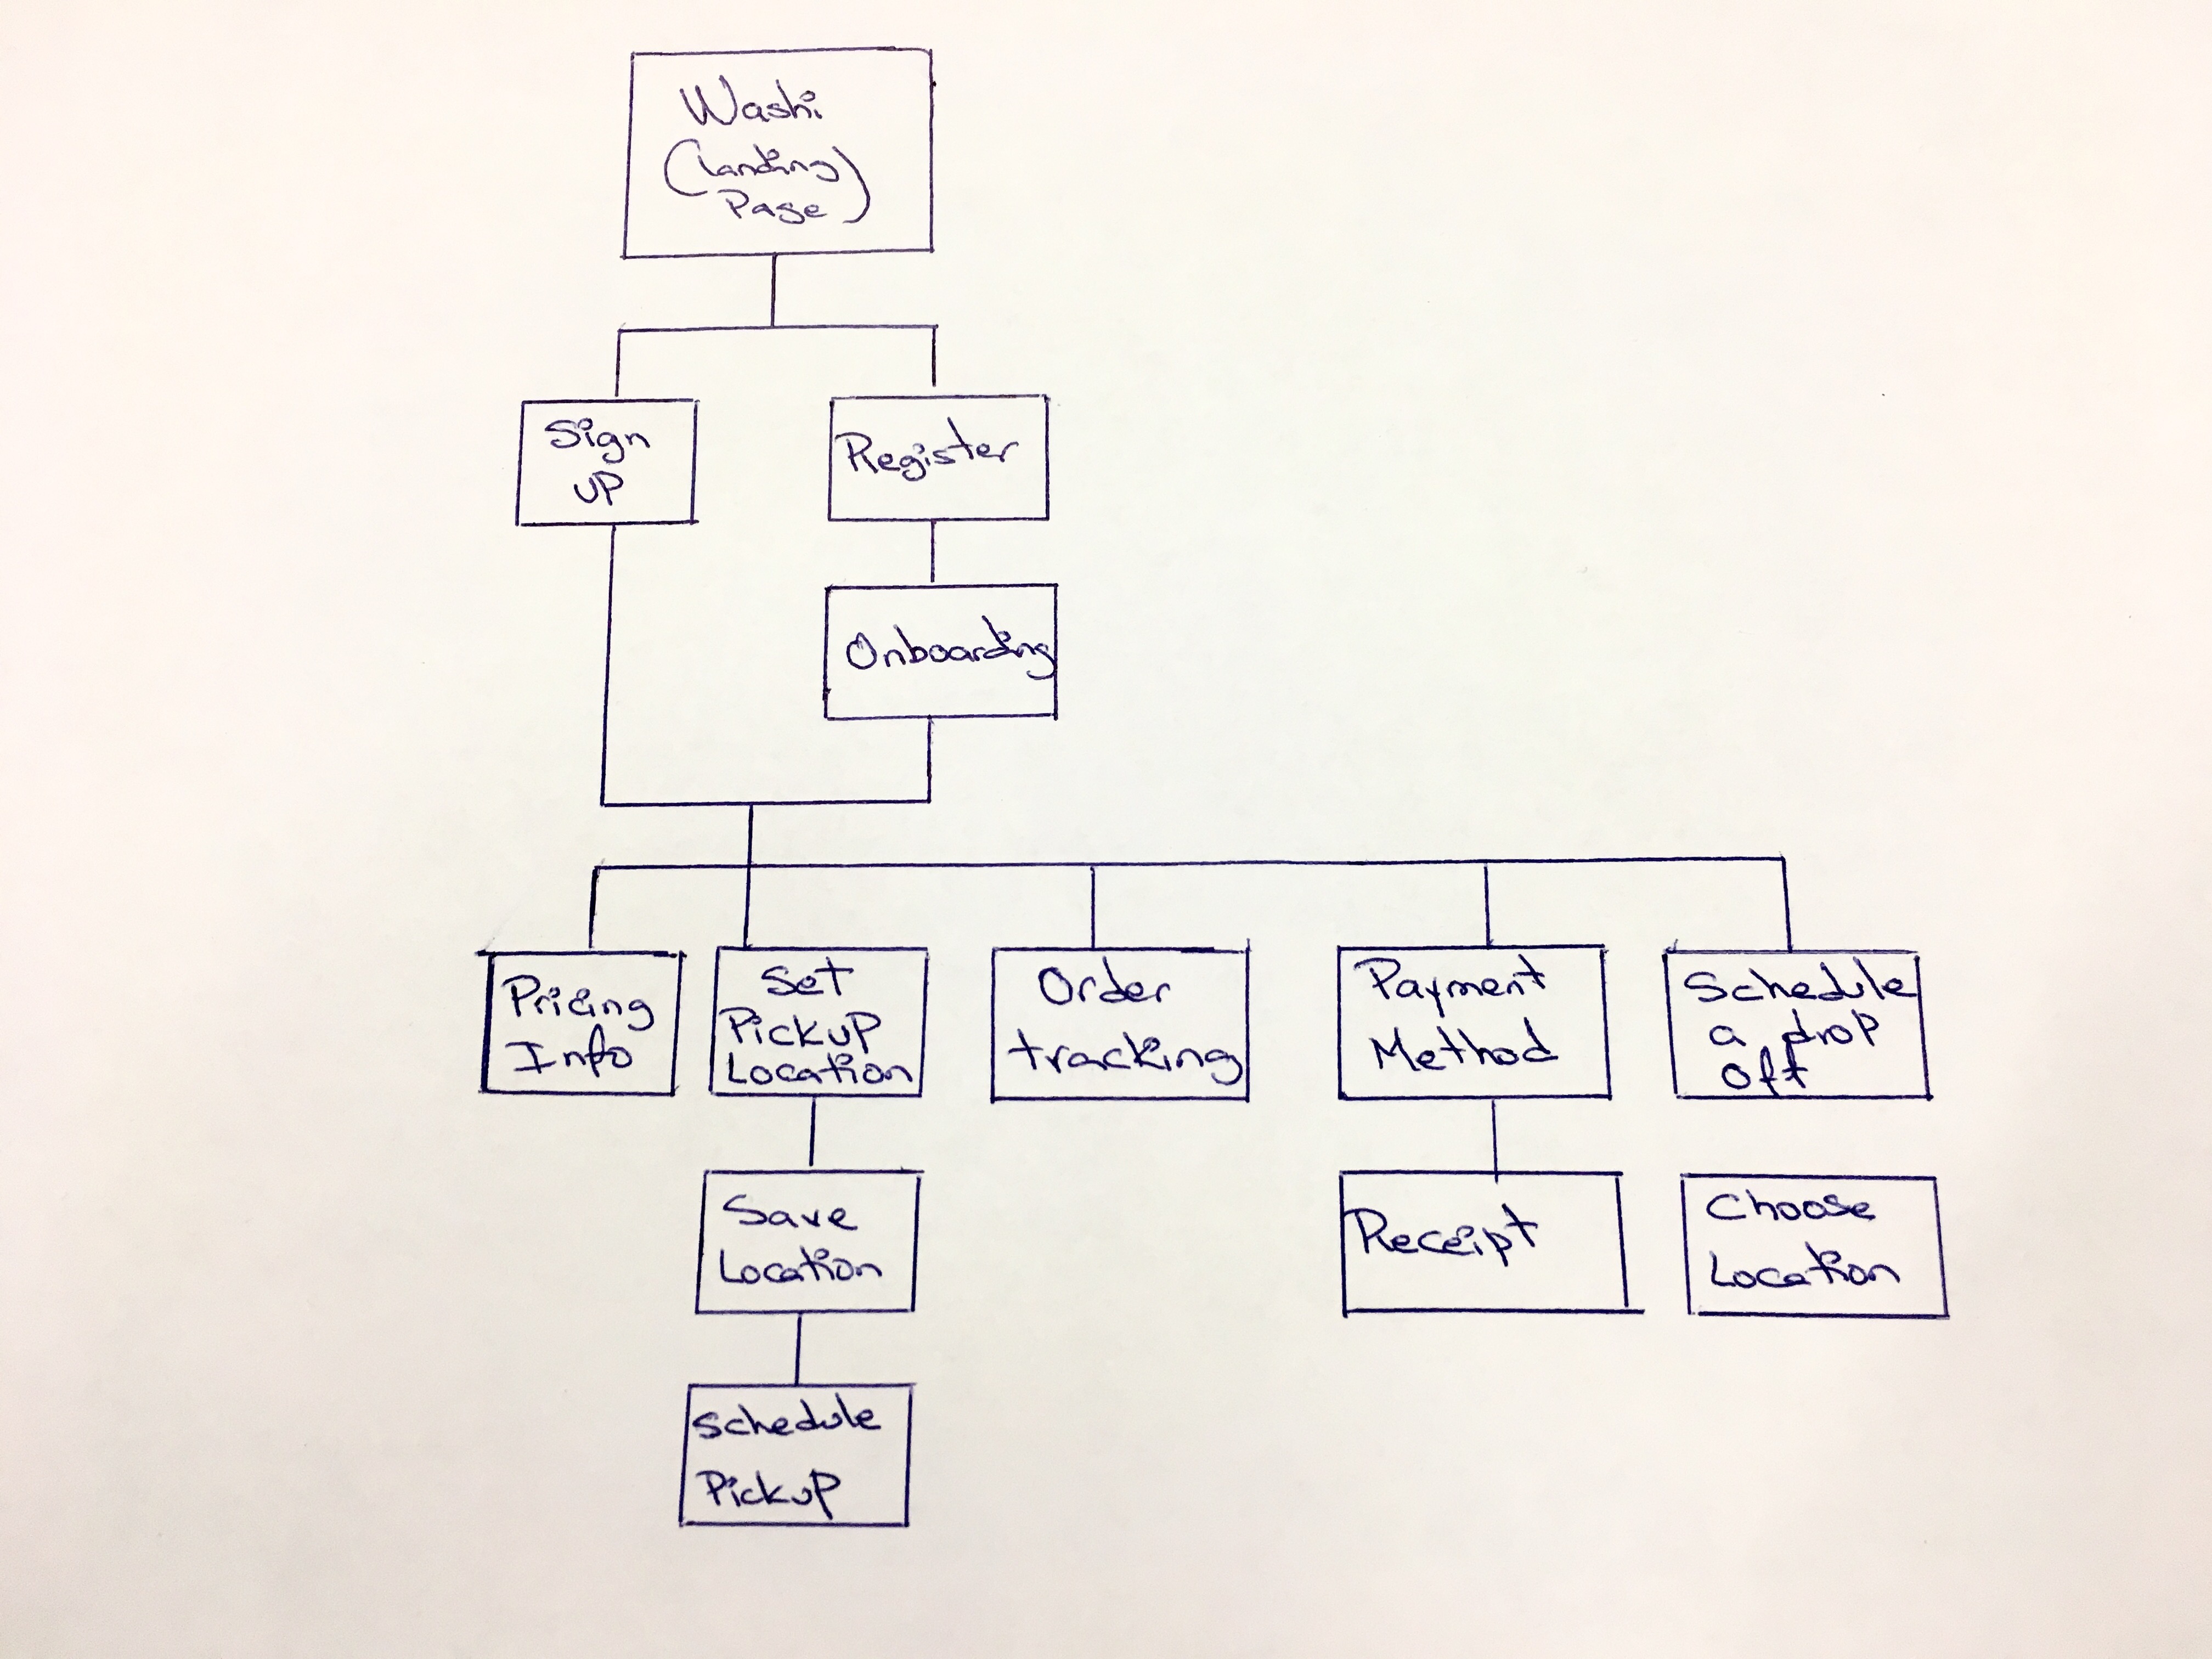 Washi
(Landing
Page)
Sign
UP
Register
Onboarding
Pricing
Info
Set
Pickup
Location
Order
tracking
Payment
Method
Schedule
a drop
off
Save
Location
Receipt
Choose
Location
Schedule
Pickup